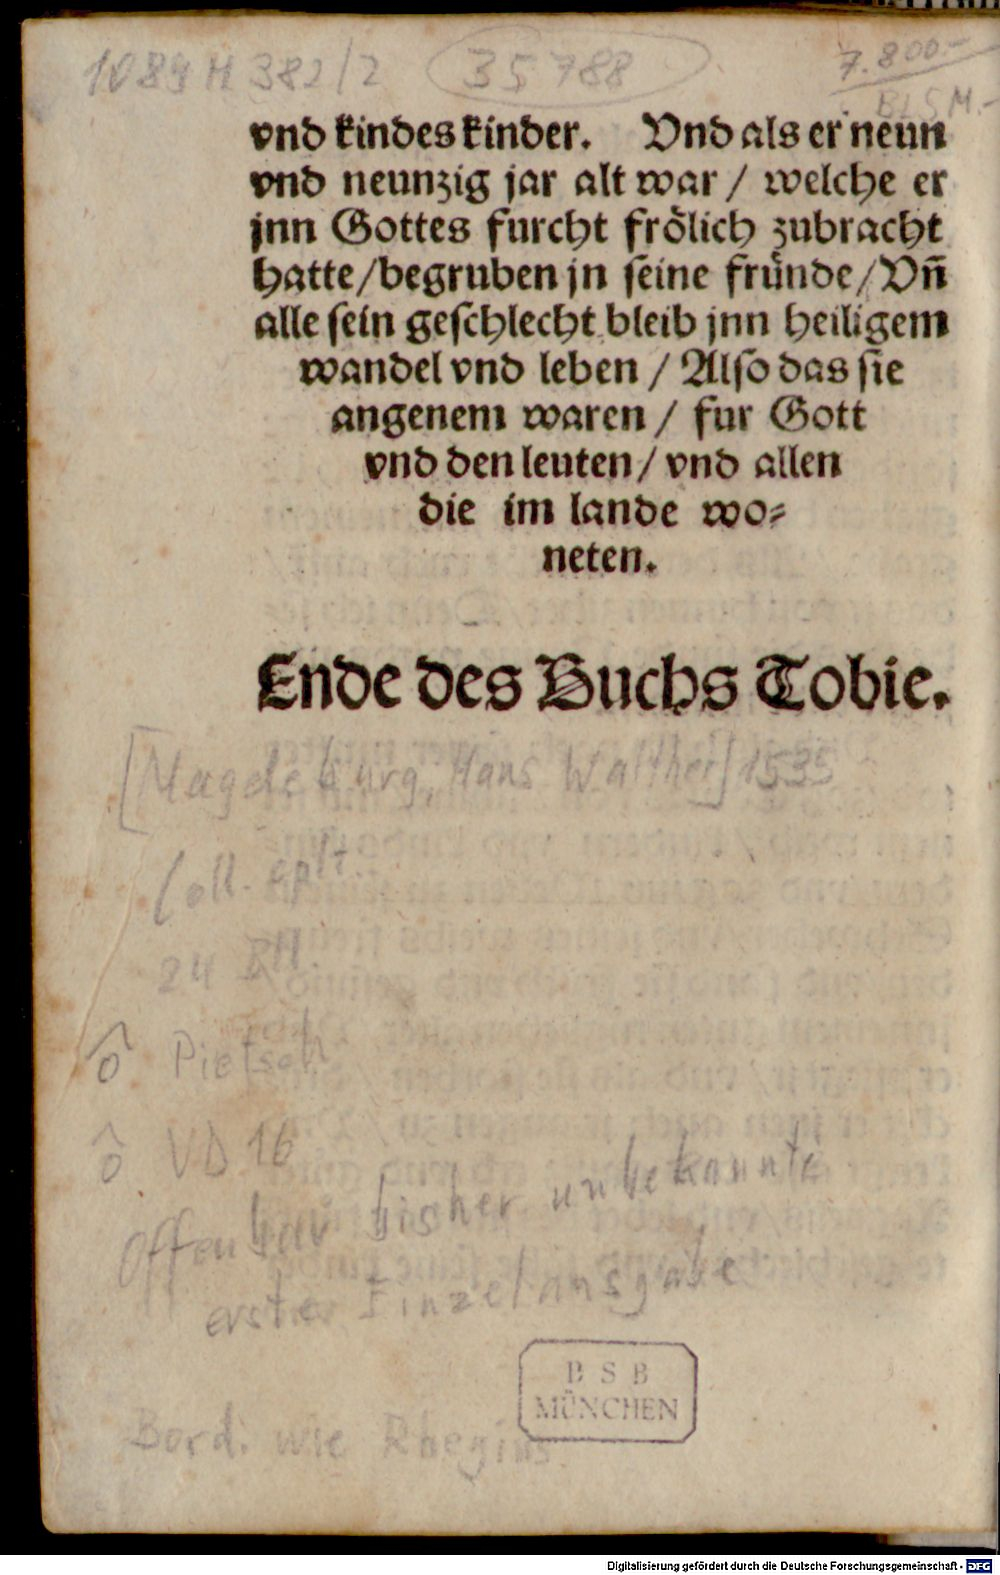 1089 H 382/2 35788 7.800.-
BLSM.-
vnd kindes kinder. Vnd als er neun
vnd neunzig jar alt war / welche er
jnn Gottes furcht frölich zubracht
hatte / begruben jn seine fründe / Vñ
alle sein geschlecht bleib jnn heiligem
wandel vnd leben / Also das sie
angenem waren / fur Gott
vnd den leuten / vnd allen
die im lande wo⸗
neten.
Ende des Buchs Tobie.
[Magdeburg, Hans Walther] 1535
Coll. cplt.
24 Bll.
ô Pietsch
ô VD 16
Offenbar bisher unbekannte
erste Einzelausgabe
B S B
MÜNCHEN
Bord. wie Rhegius
Digitalisierung gefördert durch die Deutsche Forschungsgemeinschaft - DFG